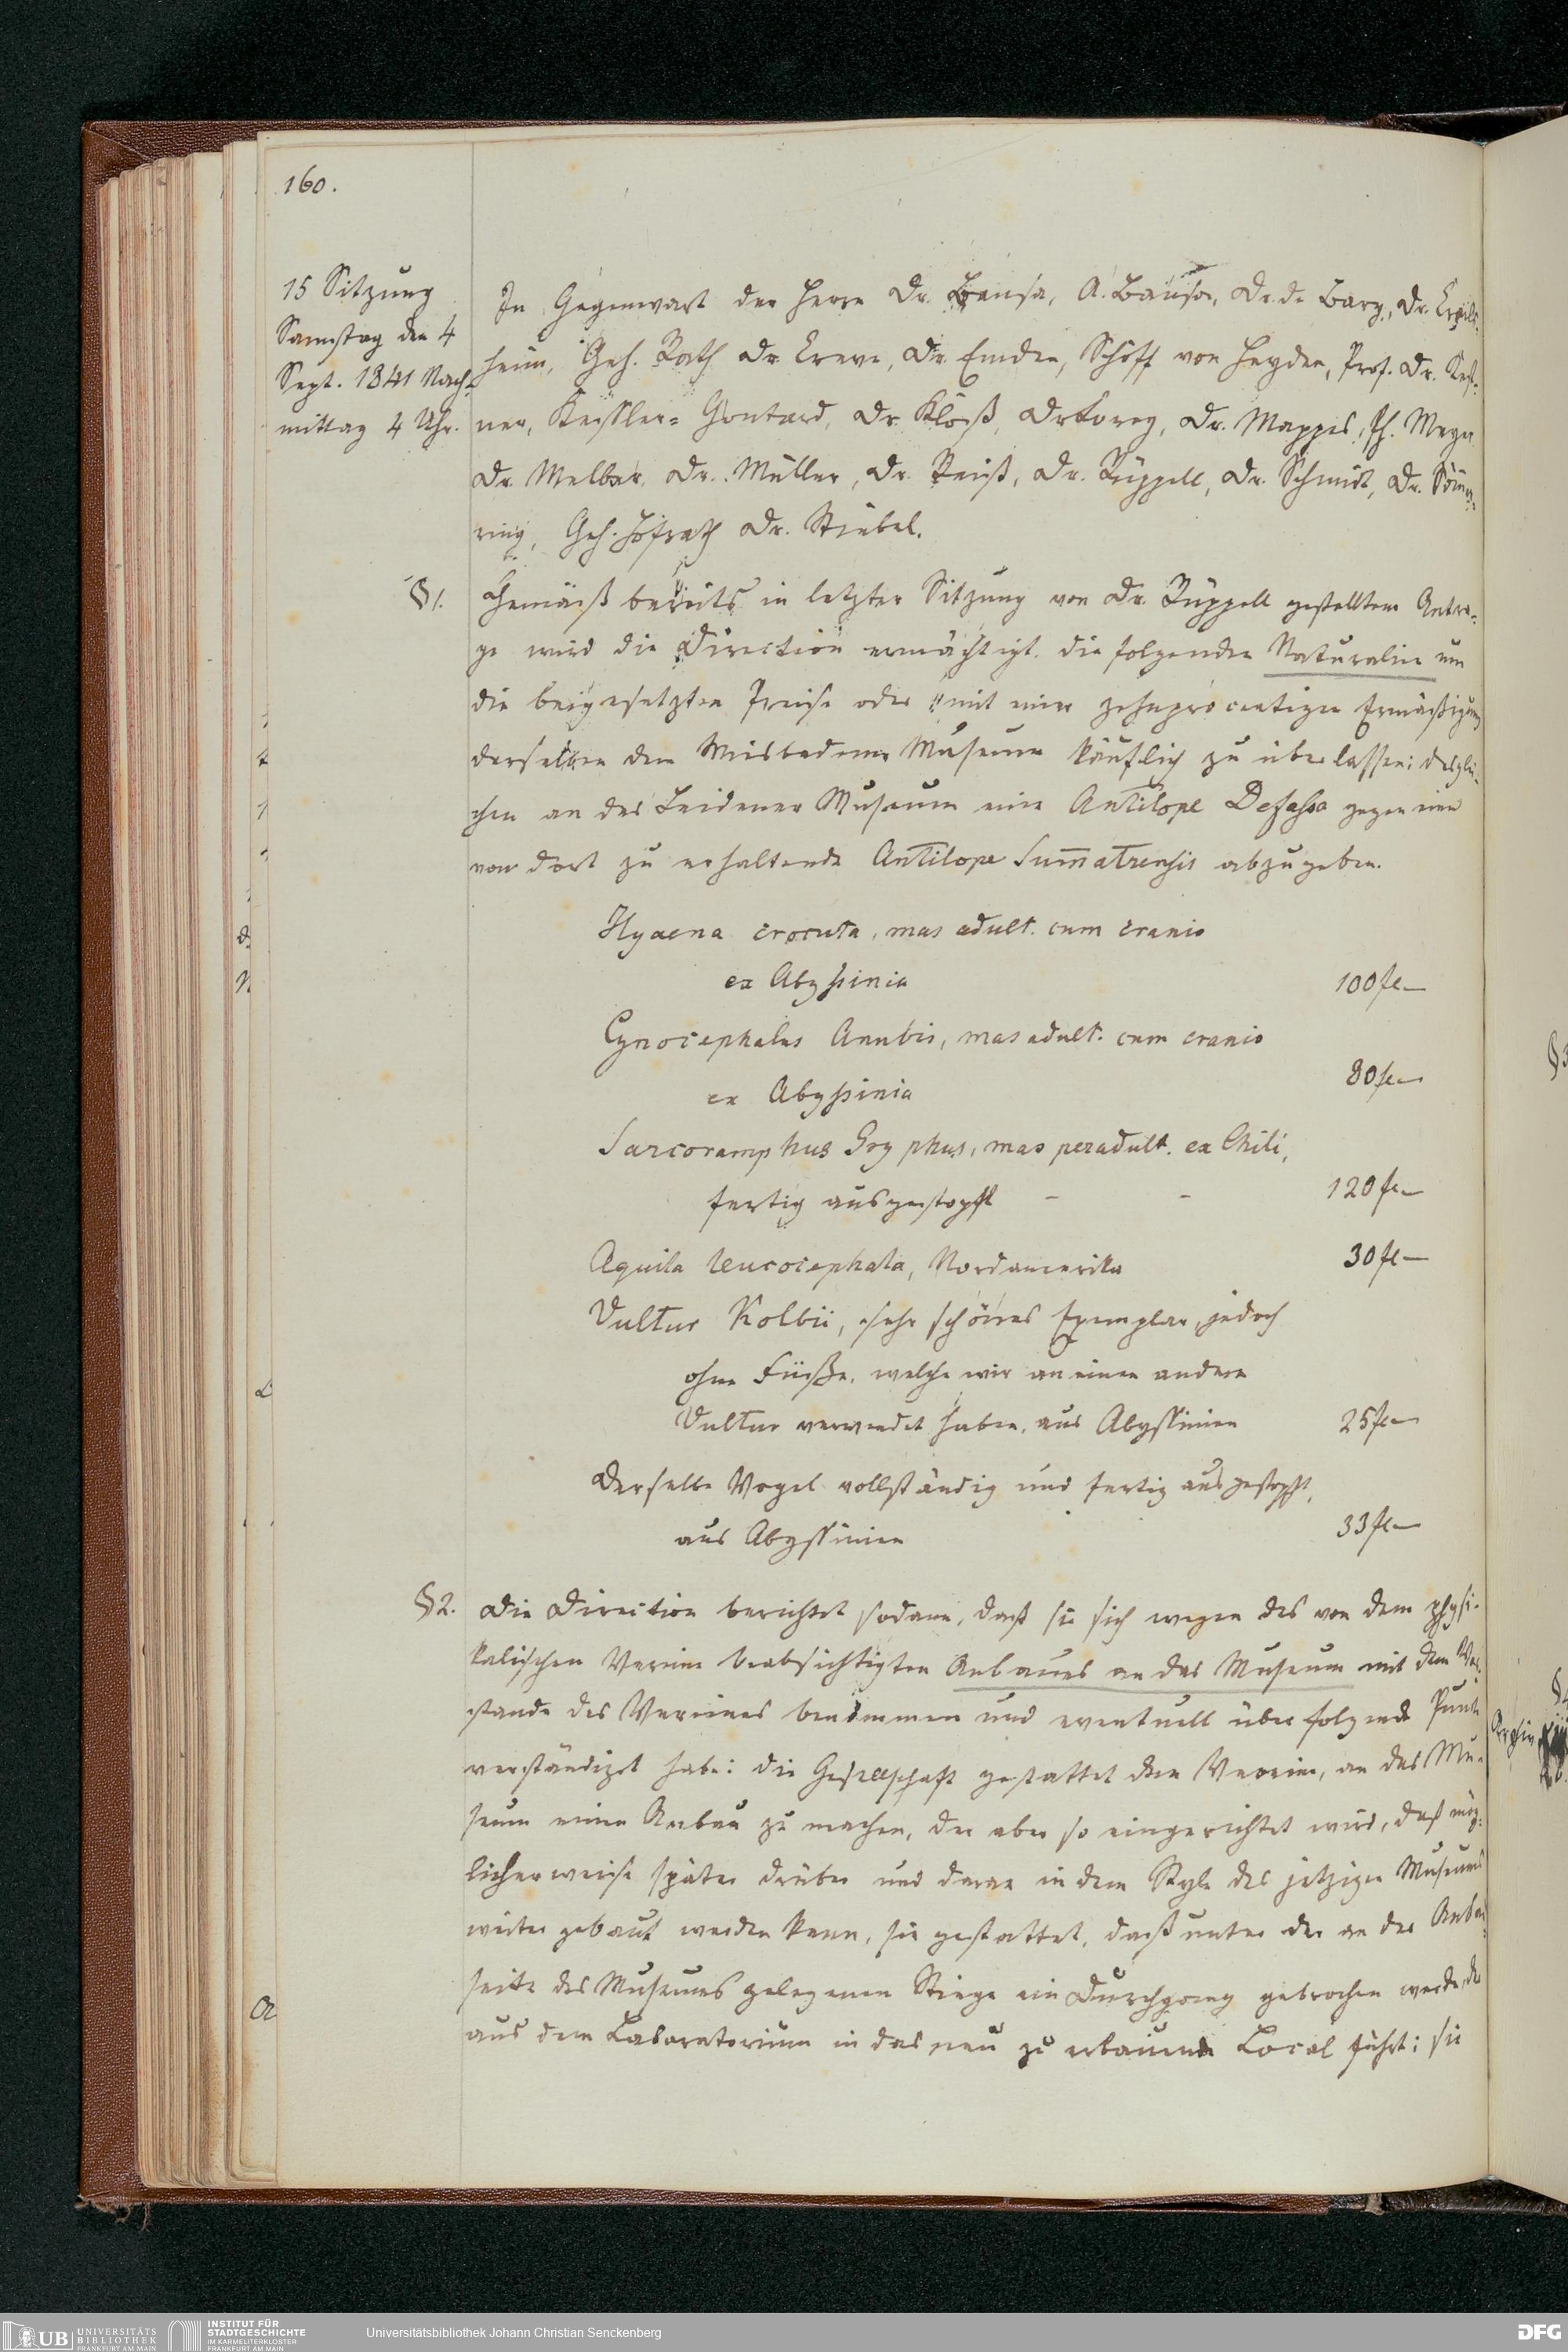 160.
15 Sitzung
Samstag den 4
Sept. 1841 Nach-
mittag 4 Uhr.
In Gegenwart der Herrn Dr. Bansa, A. Bansa, Dr. de Bary, Dr. 
heim, Geh. Rath Dr. Creve, Dr. Emden, Schöff von Heyden, Prof. Dr. Kest-
ner, Keissler-Gontard, Dr. Kloß, Dr Lorey, Dr. Mappes, H. Meyer
Dr. Melber, Dr. Müller, Dr. Reiß, Dr. Rüppell, Dr. Schmidt, Dr. Sömme-
ring, Geh. Hofrath Dr. Stiebel.
§1. Gemäß bereits in letzter Sitzung von Dr. Rüppell gestelltem Antra-
ge wird die Direction ermächtigt die folgenden Naturalien um
die beigesetzten Preise oder mit einer zehnprocentigen Ermäßigung
derselben dem Wiesbadener Museum käuflich zu überlassen; desglei-
chen an das Leidener Museum eine Antilope Defassa gegen eine
von dort zu erhaltende Antilope Sumatrensis abzugeben.
Hyaena crocuta, mas adult. cum cranio
ex Abyssinia 100 fl —
Cynocephalus Anubis, mas adult. cum cranio
ex Abyssinia 80 fl —
Sarcoramphus Gryphus, mas peradult. ex Chili,
fertig ausgestopft - - 120 fl —
Aquila leucocephala, Nordamerika 30 fl —
Vultur Kolbii, sehr schönes Exemplar, jedoch
ohne Füße, welche wir an einen andern
Vultur verwendet haben, aus Abyssinien 25 fl —
Derselbe Vogel vollständig und fertig ausgestopft,
aus Abyssinien 33 fl —
§2. Die Direction berichtet sodann, daß sie sich wegen des von dem physi-
kalischen Verein beabsichtigten Anbaues an das Museum mit dem Vor-
stande des Vereines benommen und eventuell über folgende Punkte
verständigt habe: die Gesellschaft gestattet dem Verein, an das Mu-
seum einen Anbau zu machen, der aber so eingerichtet wird, daß mög-
licherweise später drüber und daran in dem Style des jetzigen Museums
weiter gebaut werden kann, sie gestattet, daß unter der an der 
seite des Museums gelegenen Stiege ein Durchgang gebrochen werde, der
aus dem Laboratorium in das neu zu erbauende Local führt; sie
UB UNIVERSITÄTS
BIBLIOTHEK
FRANKFURT AM MAIN
INSTITUT FÜR
STADTGESCHICHTE
IM KARMELITERKLOSTER
FRANKFURT AM MAIN
Universitätsbibliothek Johann Christian Senckenberg
DFG